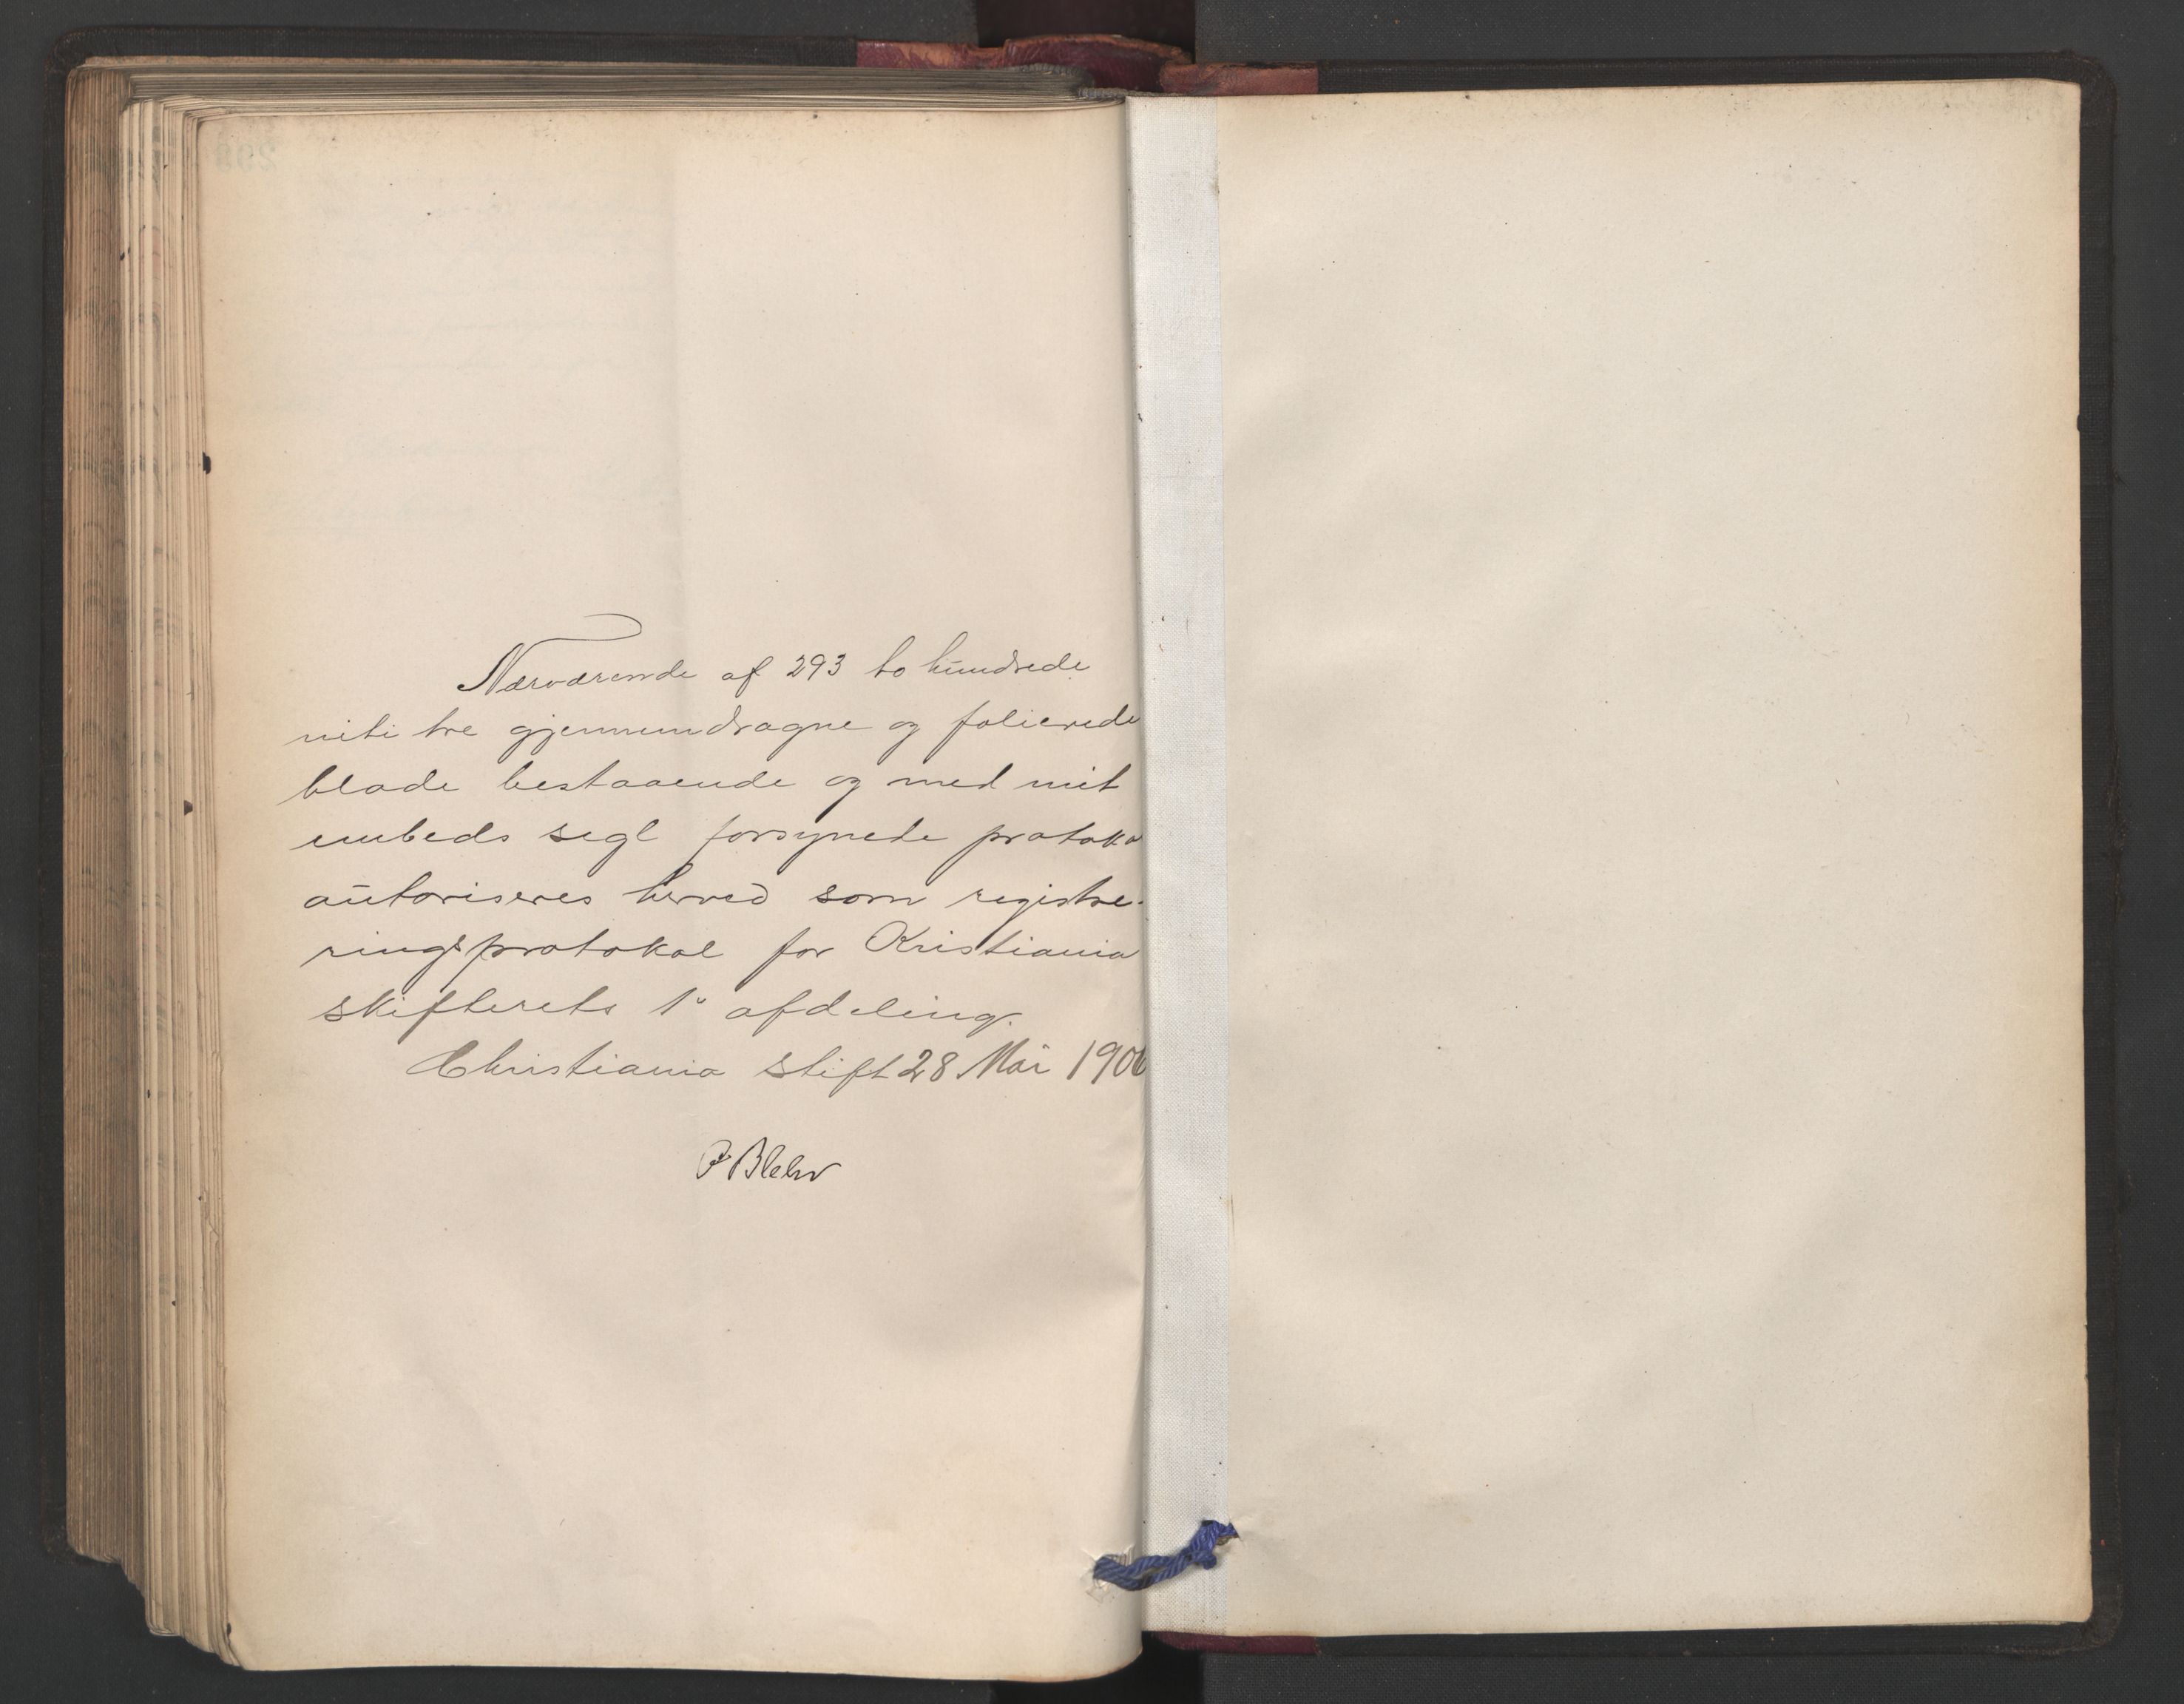 Nærværende af 293 to hundrede
niti tre gjennemdragne og folierede
blade bestaaende og med mit
embeds segl forsynede protoko
autoriseres herved som registre-
ringsprotokol for Kristiania
skifterets 1ste afdeling.
Christiania stift 28 Mai 190
Blehr